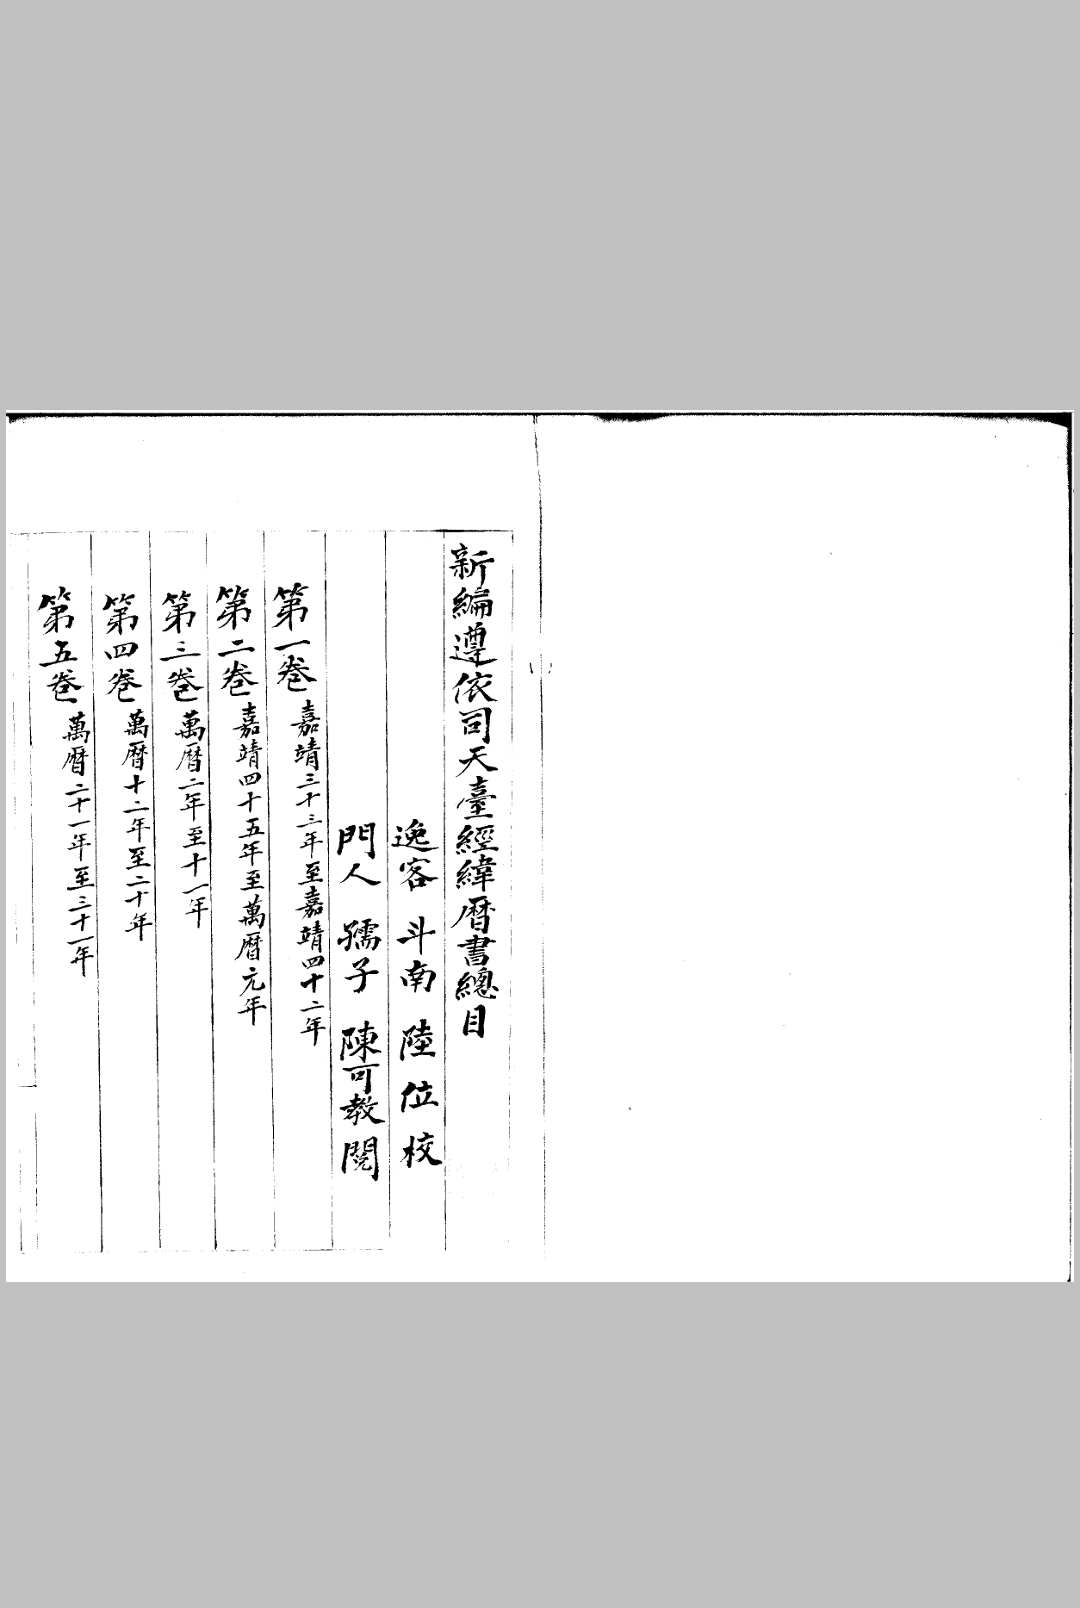 新編遵依司天臺經緯曆書總目
逸客 斗南 陸位校
門人 孺子 陳可教閱
第一卷 嘉靖三十三年至嘉靖四十二年
第二卷 嘉靖四十五年至萬曆元年
第三卷 萬曆二年至十一年
第四卷 萬曆十二年至二十年
第五卷 萬曆二十一年至三十一年